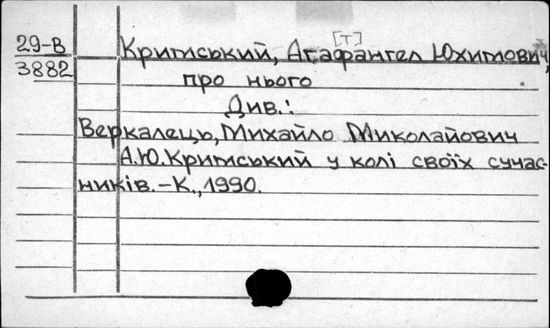 [т]
29-В Кримський, Агафангел Юхимович,
3882 про нього
Див.:
Веркалець, Михайло Миколайович
А.Ю.Кримський у колі своїх сучас-
ників.-К., 1990.